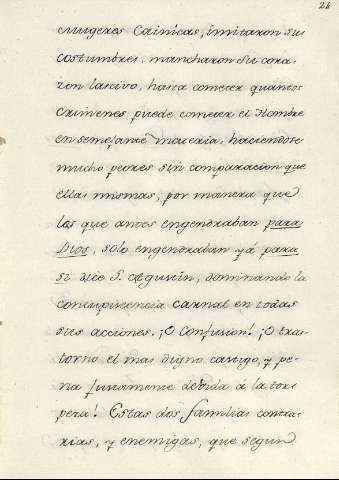 26
mugeres Cainicas, imitaron sus
costumbres, mancharon su cora-
zon lascivo, hasta cometer quantos
crimenes puede cometer el Hombre
en semejante materia, haciendose
mucho peores sin comparacion que
ellas mismas, por manera que
los que antes engendraban para
Dios, solo engendraban yá para
si dice S. Agustin, dominando la
concupiscencia carnal en todas
sus acciones. ¡O Confusion! ¡O tras-
torno el mas digno castigo, y pe-
na justamente debida á la tor-
peza! Estas dos familias contra-
rias, y enemigas, que segun